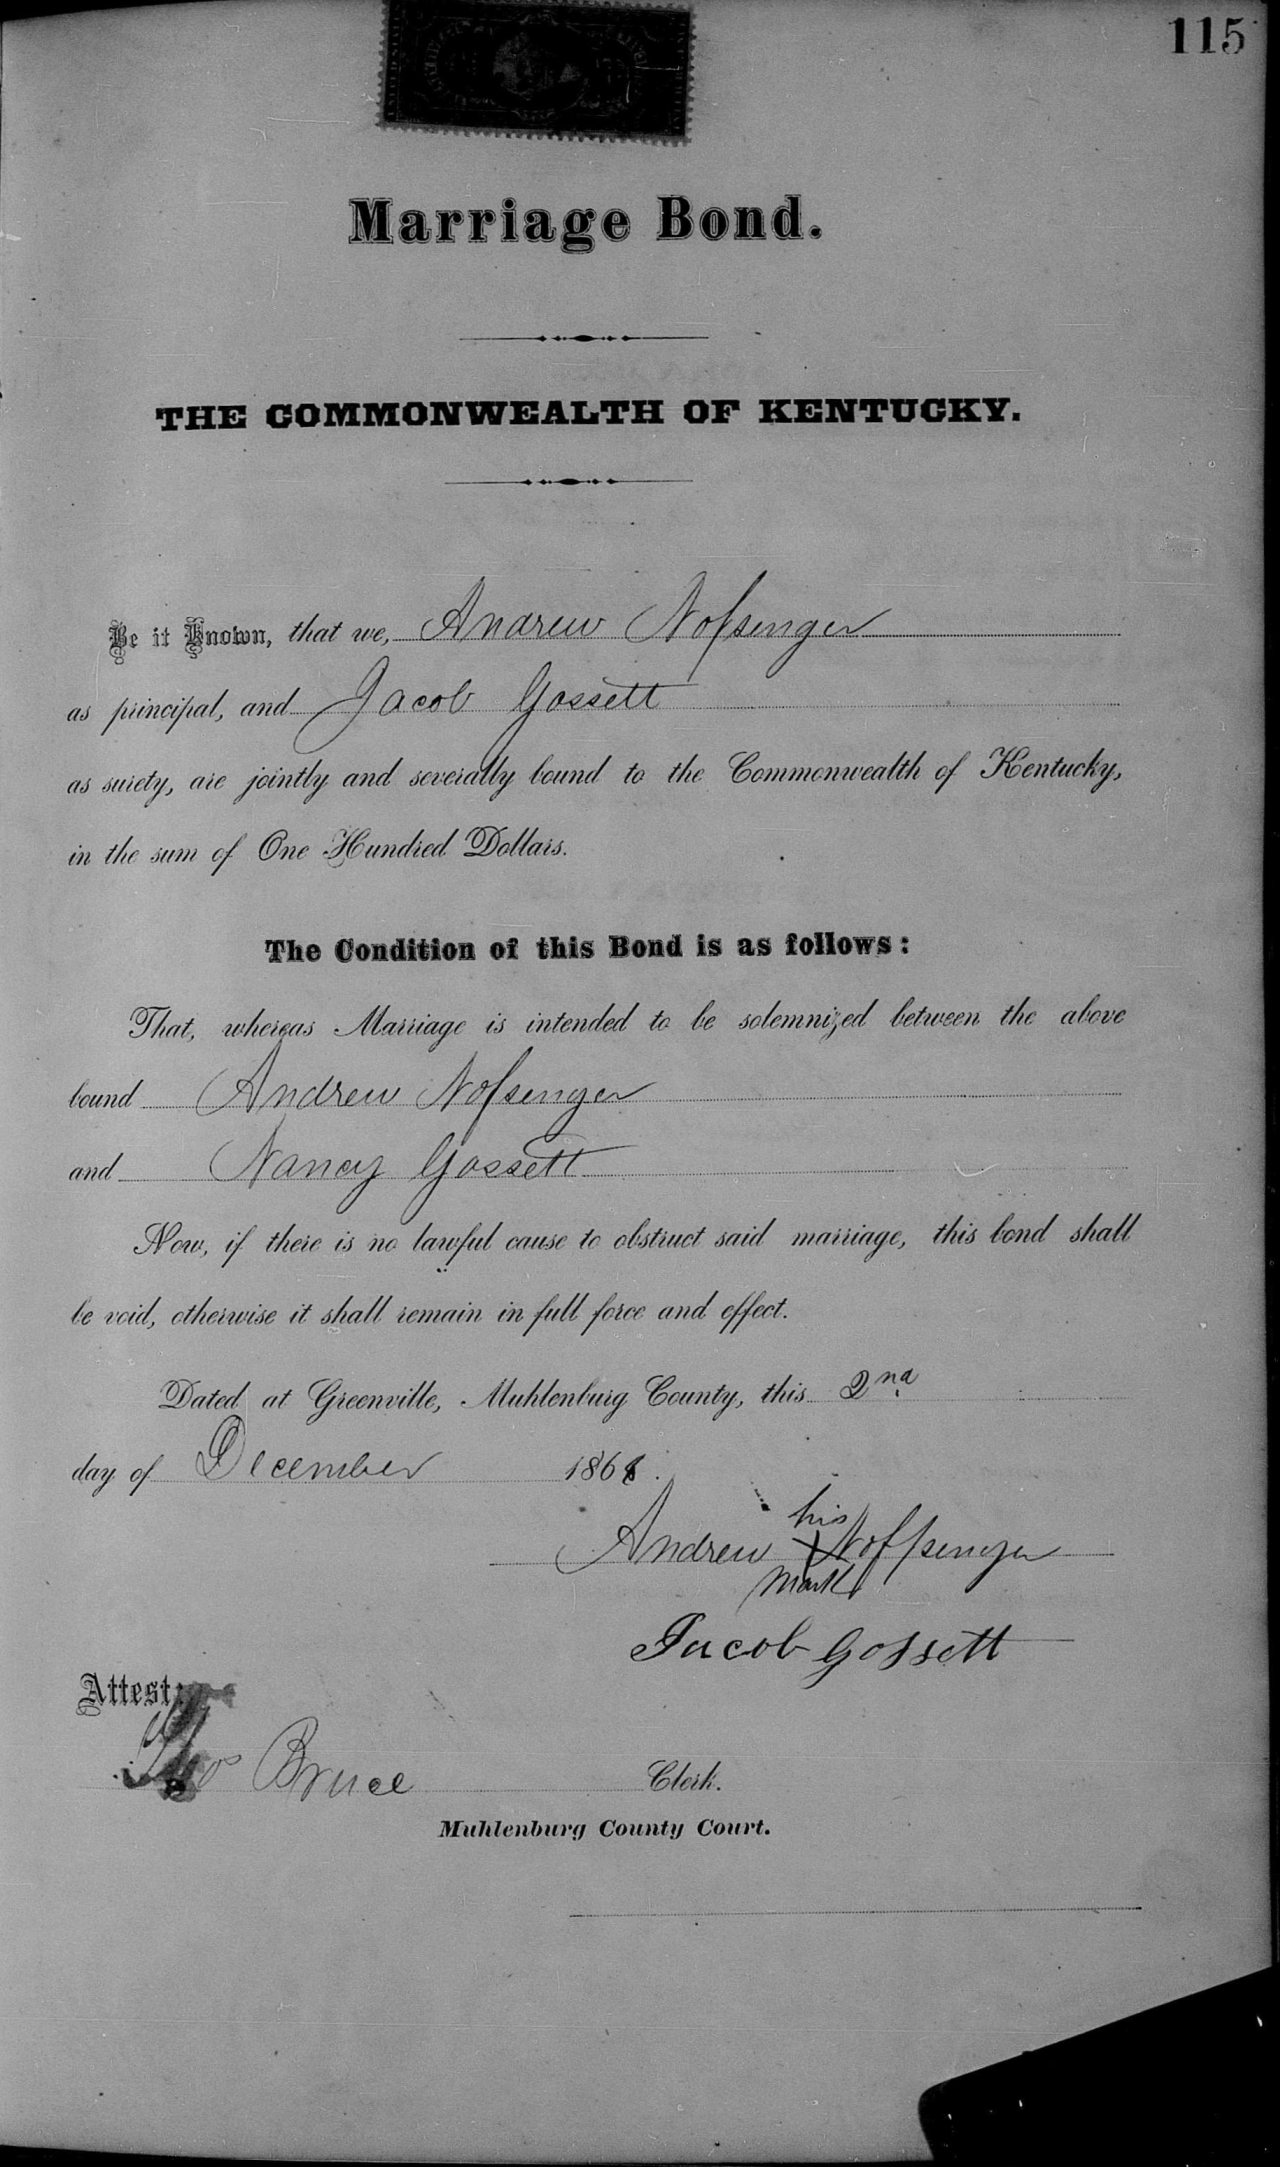 115
Marriage Bond.
THE COMMONWEALTH OF KENTUCKY.
Be it Known, that we, Andrew Nofsinger
as principal, and Jacob Gossett
as surety, are jointly and severally bound to the Commonwealth of Kentucky,
in the sum of One Hundred Dollars.
The Condition of this Bond is as follows:
That, whereas Marriage is intended to be solemnized between the above
bound Andrew Nofsinger
and Nancy Gossett
Now, if there is no lawful cause to obstruct said marriage, this bond shall
be void, otherwise it shall remain in full force and effect.
Dated at Greenville, Muhlenburg County, this 2nd
day of December
his
Andrew X Noffsinger
mark
Jacob Gossett
Attest:
Thos Bruce Clerk.
Muhlenburg County Court.